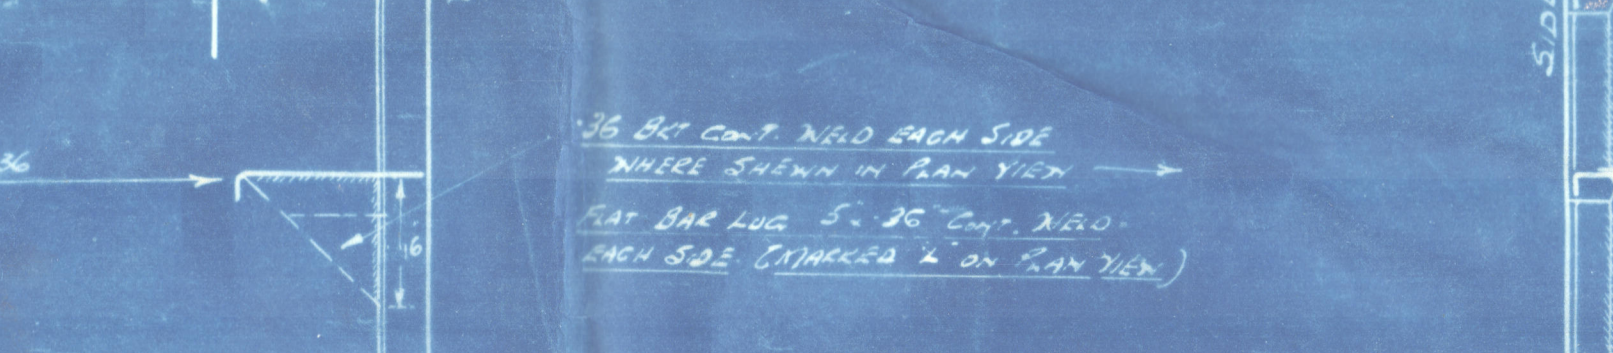 36
·36 BKT CONT. WELD EACH SIDE
WHERE SHEWN IN PLAN VIEW
FLAT BAR LUG 5" × ·36" CONT. WELD
EACH SIDE. (MARKED "L" ON PLAN VIEW)
6
SIDE